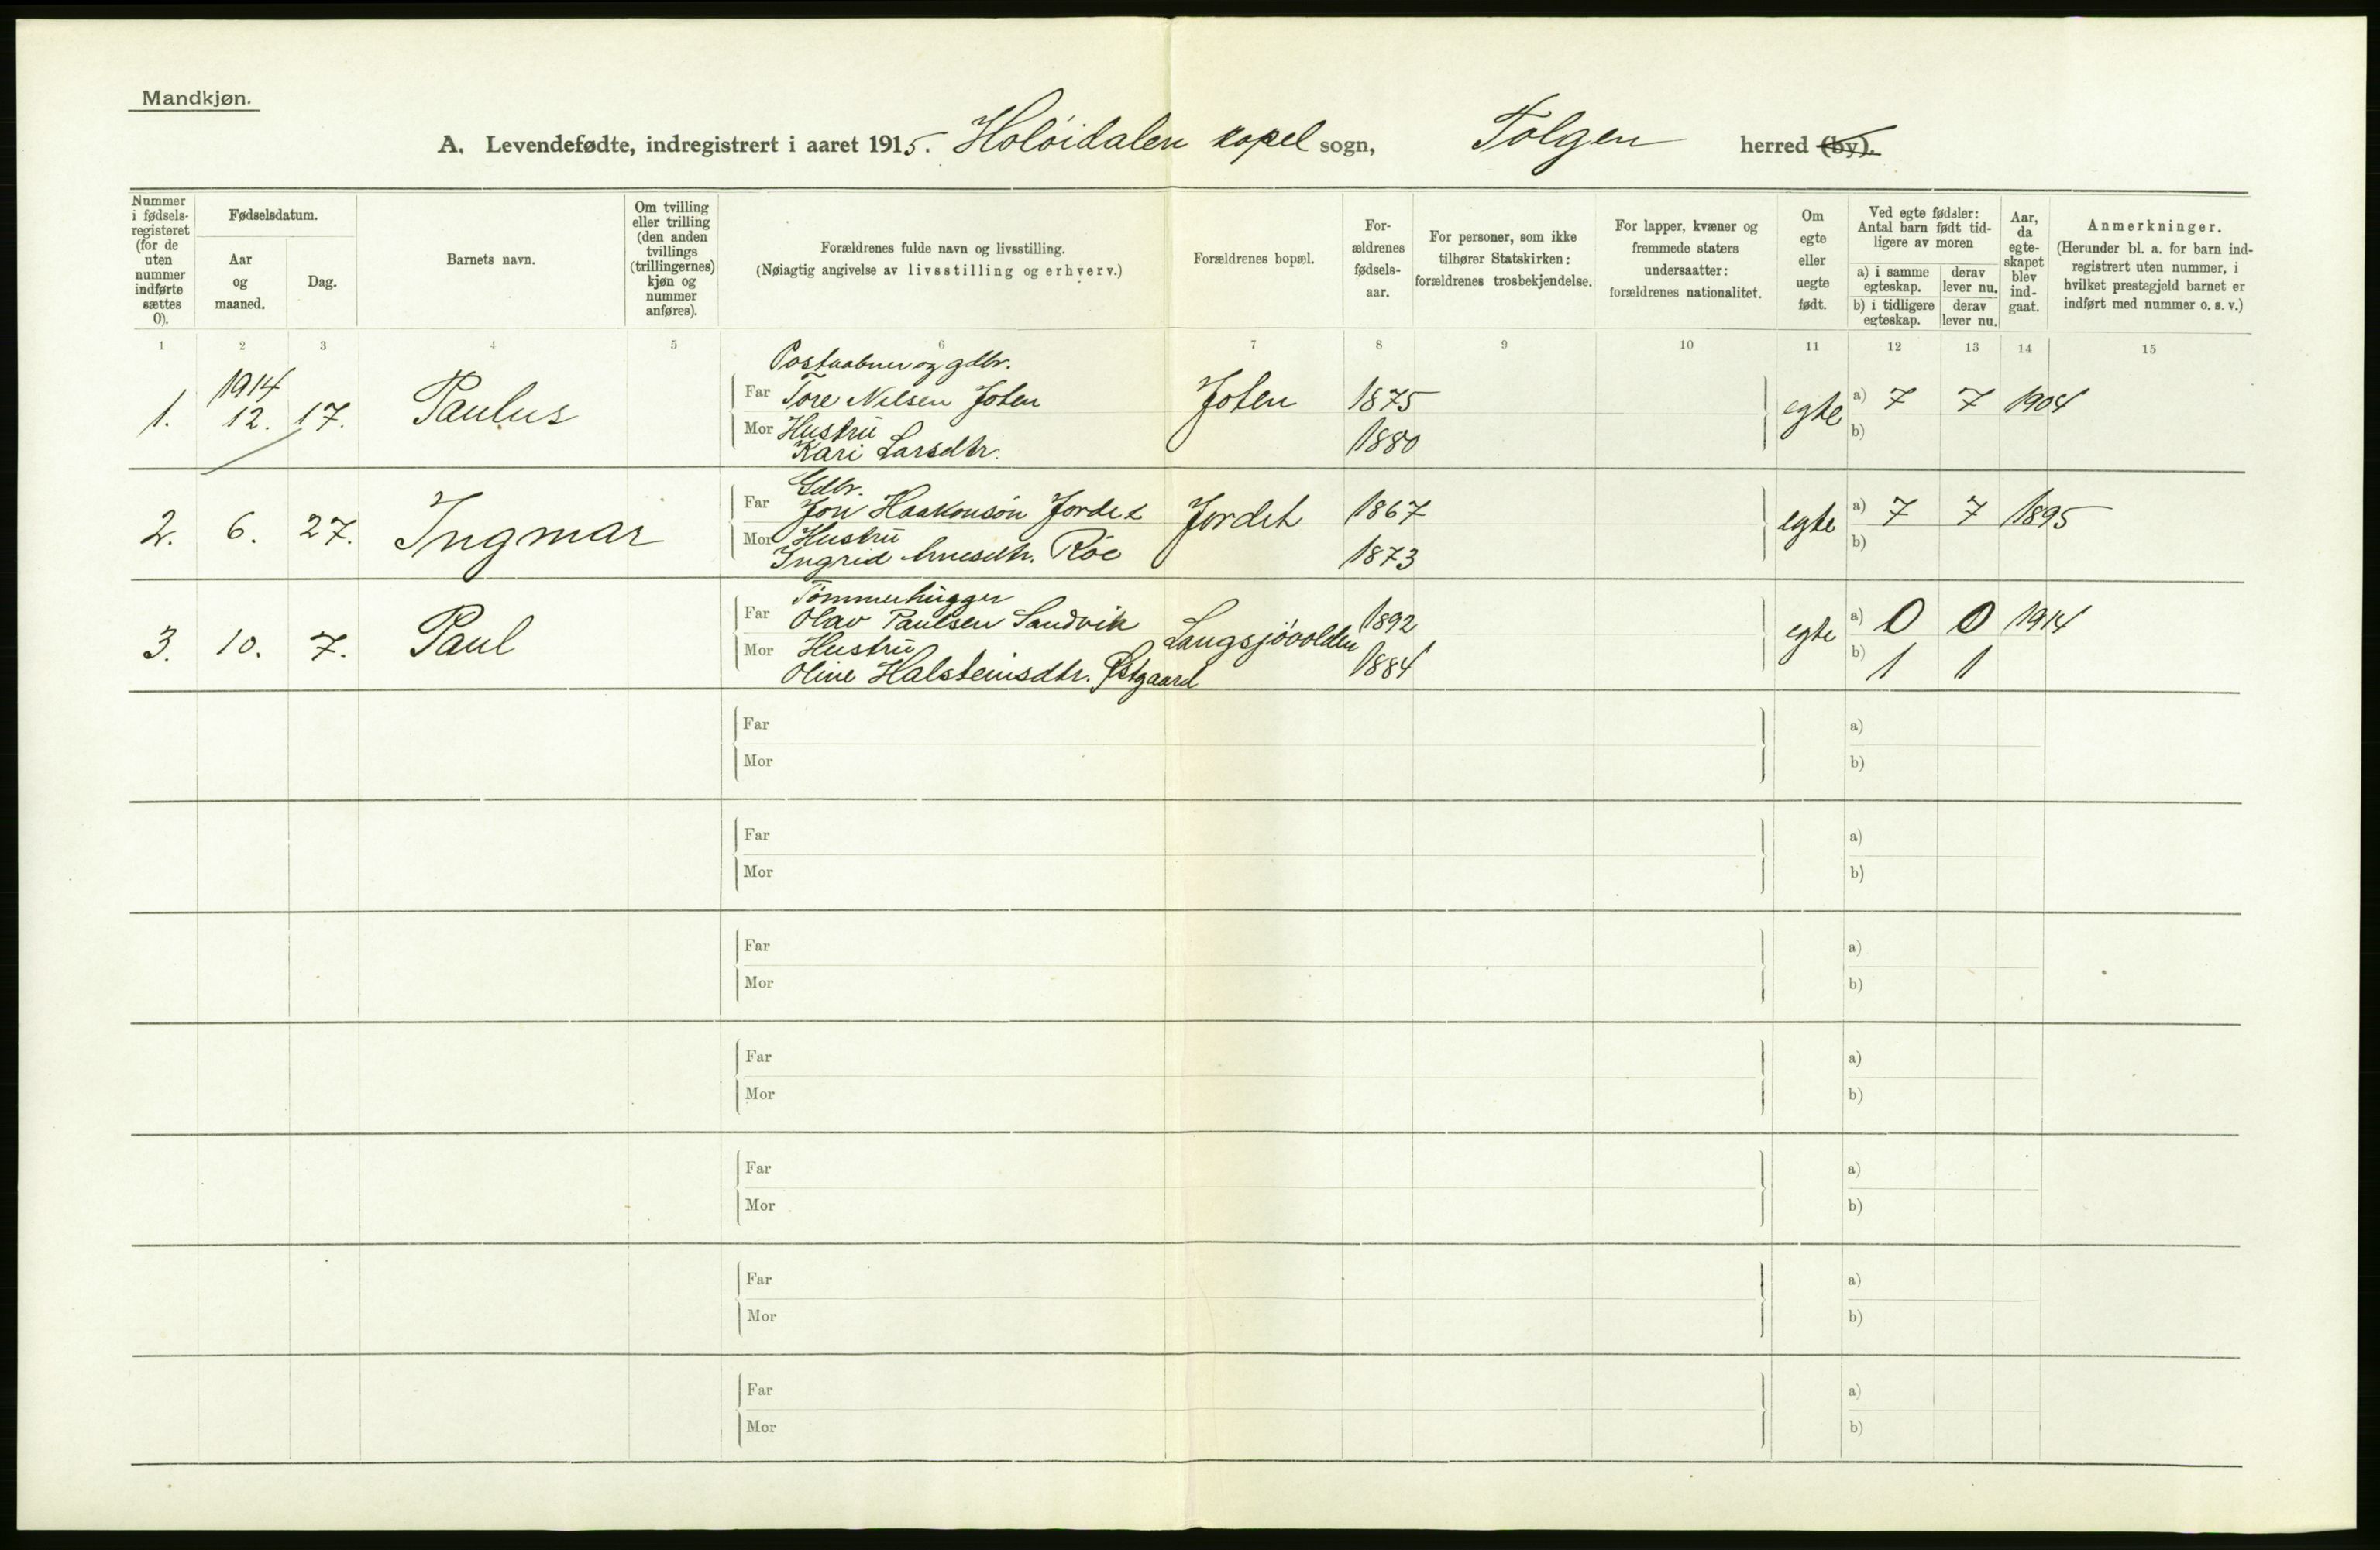 Mandkjøn.
A. Levendefødte, indregistrert i aaret 1915. Holöidalen kapel sogn, Tolgen herred (by).
Nummer i fødsels-registeret (for de uten nummer indførte sættes 0).
Fødselsdatum.
Aar og maaned.
Dag.
Barnets navn.
Om tvilling eller trilling (den anden tvillings (trillingernes) kjøn og nummer anføres).
Forældrenes fulde navn og livsstilling.
(Nøiagtig angivelse av livsstilling og erhverv.)
Forældrenes bopæl.
For-ældrenes fødsels-aar.
For personer, som ikke tilhører Statskirken: forældrenes trosbekjendelse.
For lapper, kvæner og fremmede staters undersaatter: forældrenes nationalitet.
Om egte eller uegte født.
Ved egte fødsler: Antal barn født tid-ligere av moren
a) i samme egteskap. derav lever nu.
b) i tidligere egteskap. derav lever nu.
Aar, da egte-skapet blev ind-gaat.
Anmerkninger.
(Herunder bl. a. for barn ind-registrert uten nummer, i hvilket prestegjeld barnet er indført med nummer o. s. v.)
1 2 3 4 5 6 7 8 9 10 11 12 13 14 15
Postaabner og gdbr.
1. 1914 12. 17. Paulus Far Tore Nilsen Joten Joten 1875 egte a) 7 7 1904
Mor Hustru 1880 b)
Kari Larsdtr.
Gdbr.
2. 6. 27. Ingmar Far Jon Haakonsön Jordet Jordet 1867 egte a) 7 7 1895
Mor Hustru b)
Ingrid Arnesdtr. Röe 1873
Tömmerhugger
3. 10. 7. Paul Far Olav Paulsen Sandvik Langsjövolden 1892 egte a) 0 0 1914
Mor Hustru 1884 b) 1 1
Oline Halsteinsdtr. Østgaard
Far a)
Mor b)
Far a)
Mor b)
Far a)
Mor b)
Far a)
Mor b)
Far a)
Mor b)
Far a)
Mor b)
Far a)
Mor b)